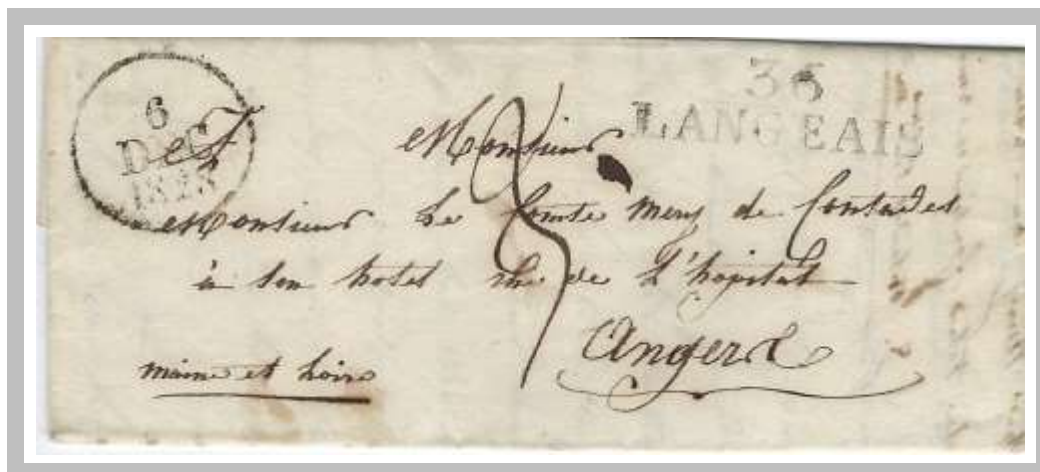 6
DEC
1828
36
LANGEAIS
A
Monsieur
Monsieur Le Comte Mery de Contades
à son hotel rue de L'hôpital
Angers
maine et Loire
3